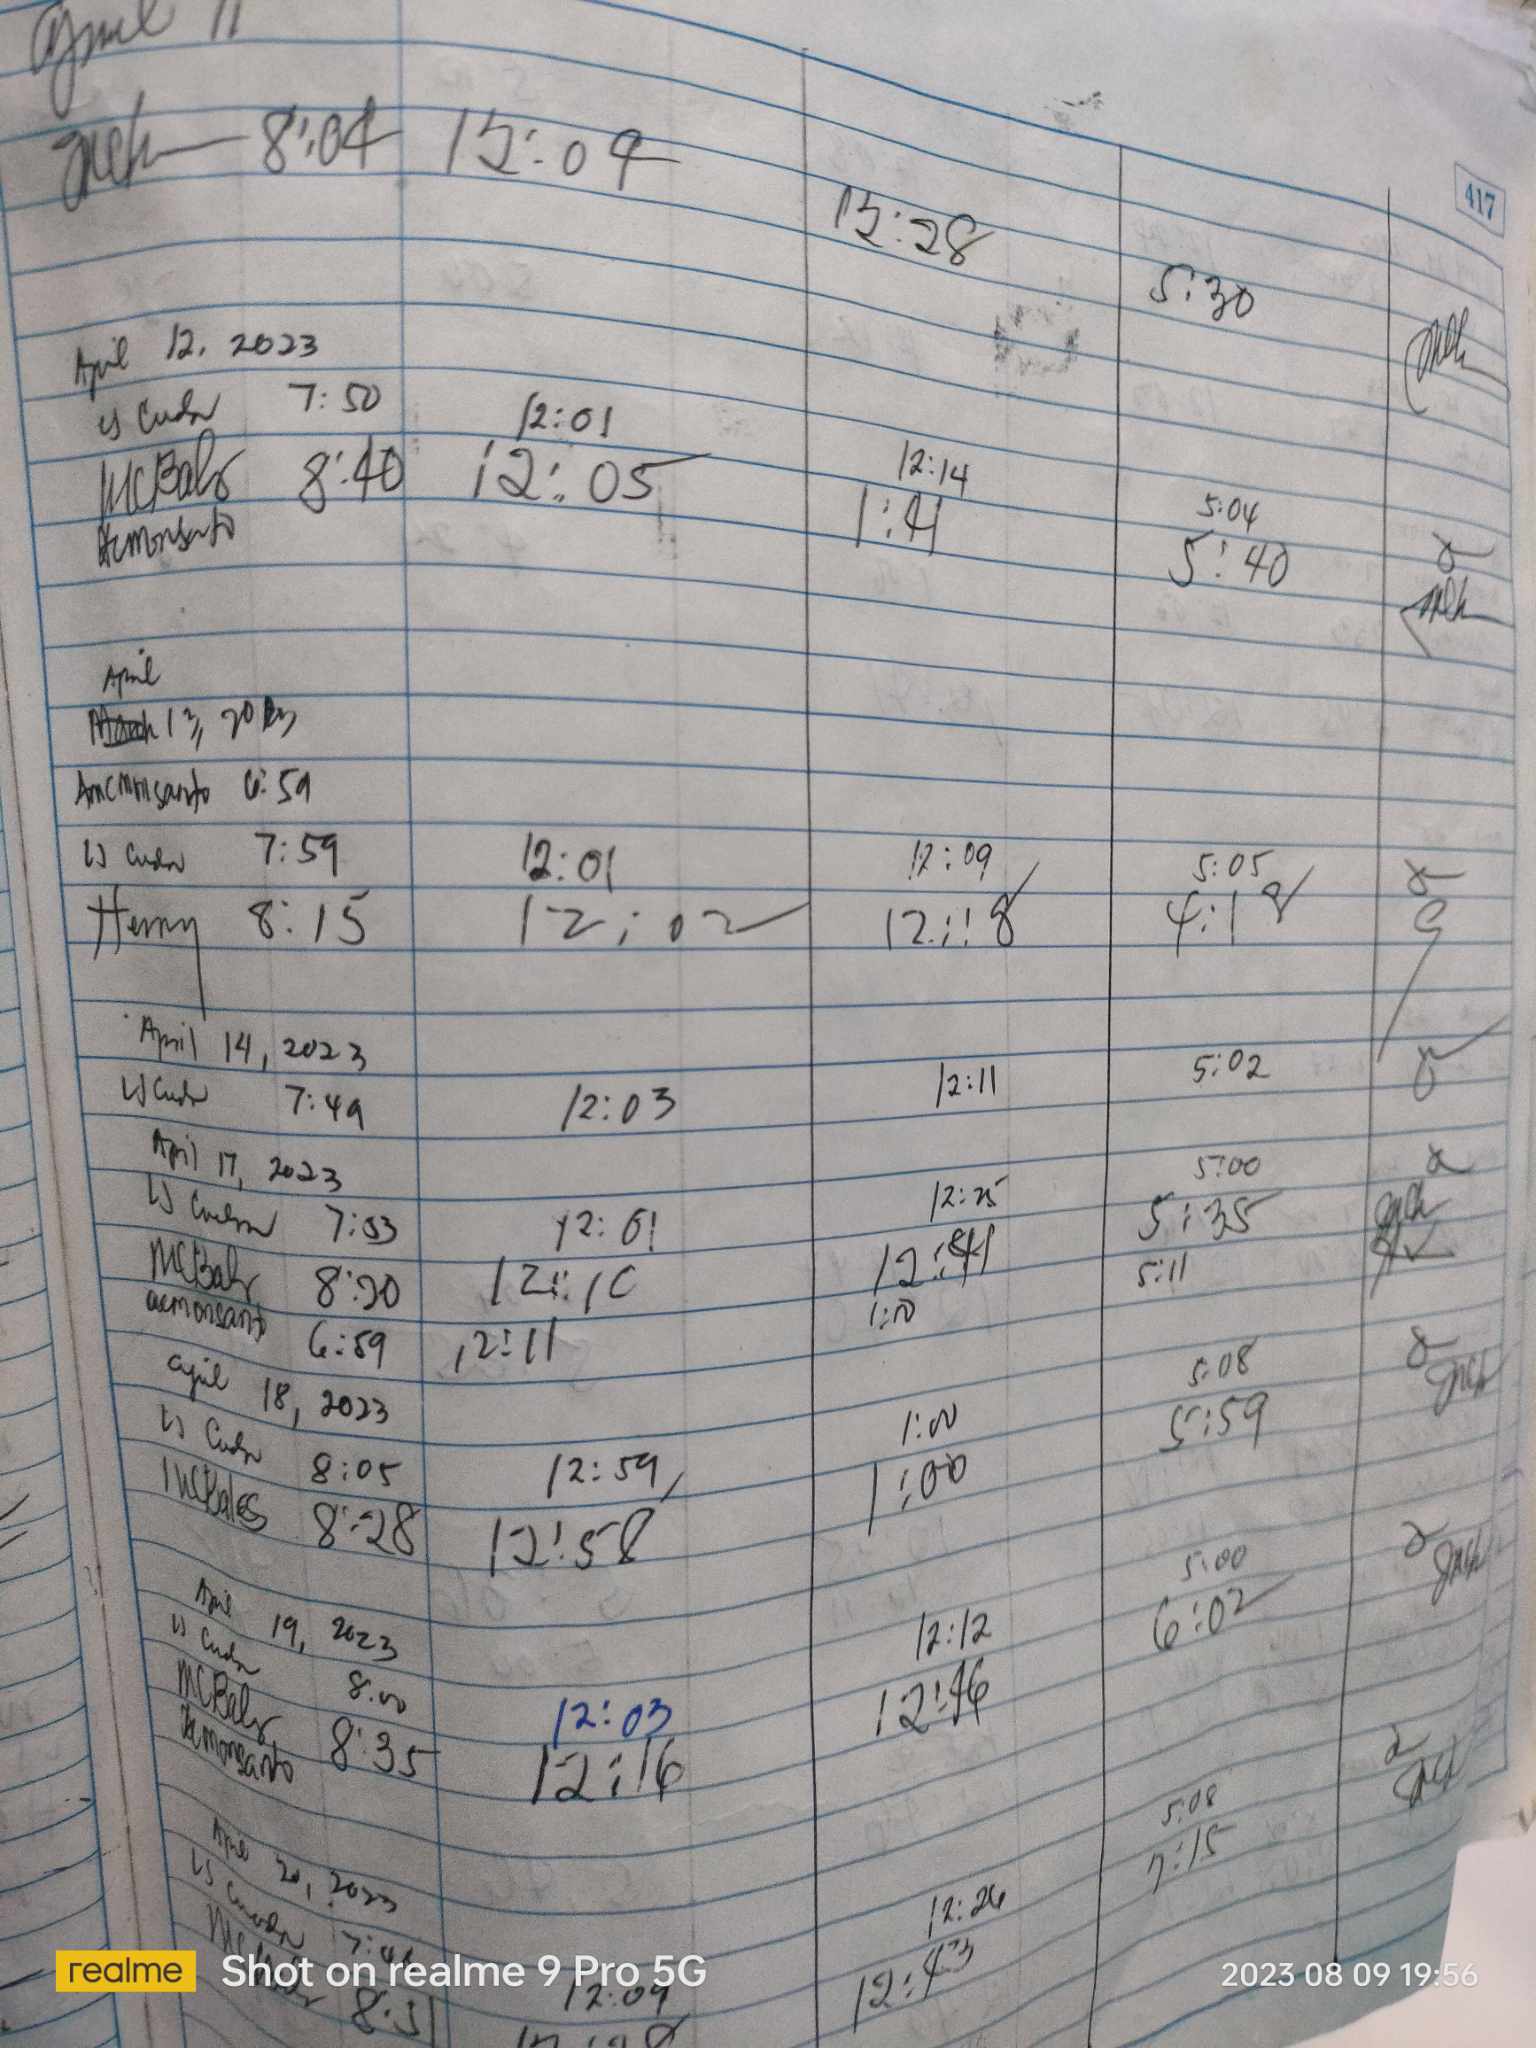 April 11
8:04 12:09 12:28 5:30
417
April 12, 2023
LS Cuda 7:50 12:01 12:14 5:04
MCBals 8:40 12:05 1:41 5:40
Acmonsanto
April
March 13, 2023
Amcmonsanto 6:59
LS Cuda 7:59 12:01 12:09 5:05
Henry 8:15 12:02 12:18 4:18
April 14, 2023
LS Cuda 7:49 12:03 12:11 5:02
April 17, 2023
LS Cuda 7:53 12:01 12:25 5:00
MCBals 8:20 12:10 12:41 5:35
acmonsanto 6:59 12:11 1:00 5:11
April 18, 2023
LS Cuda 8:05 12:59 1:00 5:08
MCBales 8:28 12:58 1:00 5:59
April 19, 2023
LS Cuda 8:00 12:03 12:12 5:00
MCBals 8:35 12:16 12:46 6:02
Acmonsanto
April 20, 2023
LS Cuda 12:09 12:26 5:08
8:31 12:43 7:15
realme Shot on realme 9 Pro 5G 2023 08 09 19:56